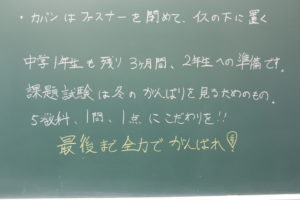 ・カバンはファスナーを閉めて、イスの下に置く
中学1年生も残り3ヶ月間、2年生への準備です。
課題試験は冬のがんばりを見るためのもの。
5教科、1問、1点にこだわりを!!
最後まで全力でがんばれ!